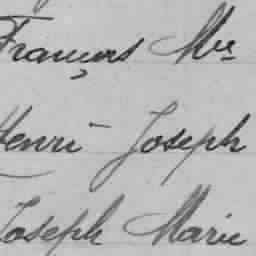 François Mie
Henri Joseph
Joseph Marie